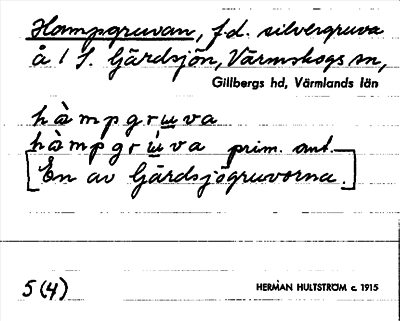 Hampgruvan, f.d. silvergruva
å 1 S. Gärdsjön, Värmskogs sn,
Gillbergs hd, Värmlands län
hàmpgruva
hàmpgrúva prim. ant.
[En av Gärdsjögruvorna.]
5 (4)
HERMAN HULTSTRÖM c. 1915